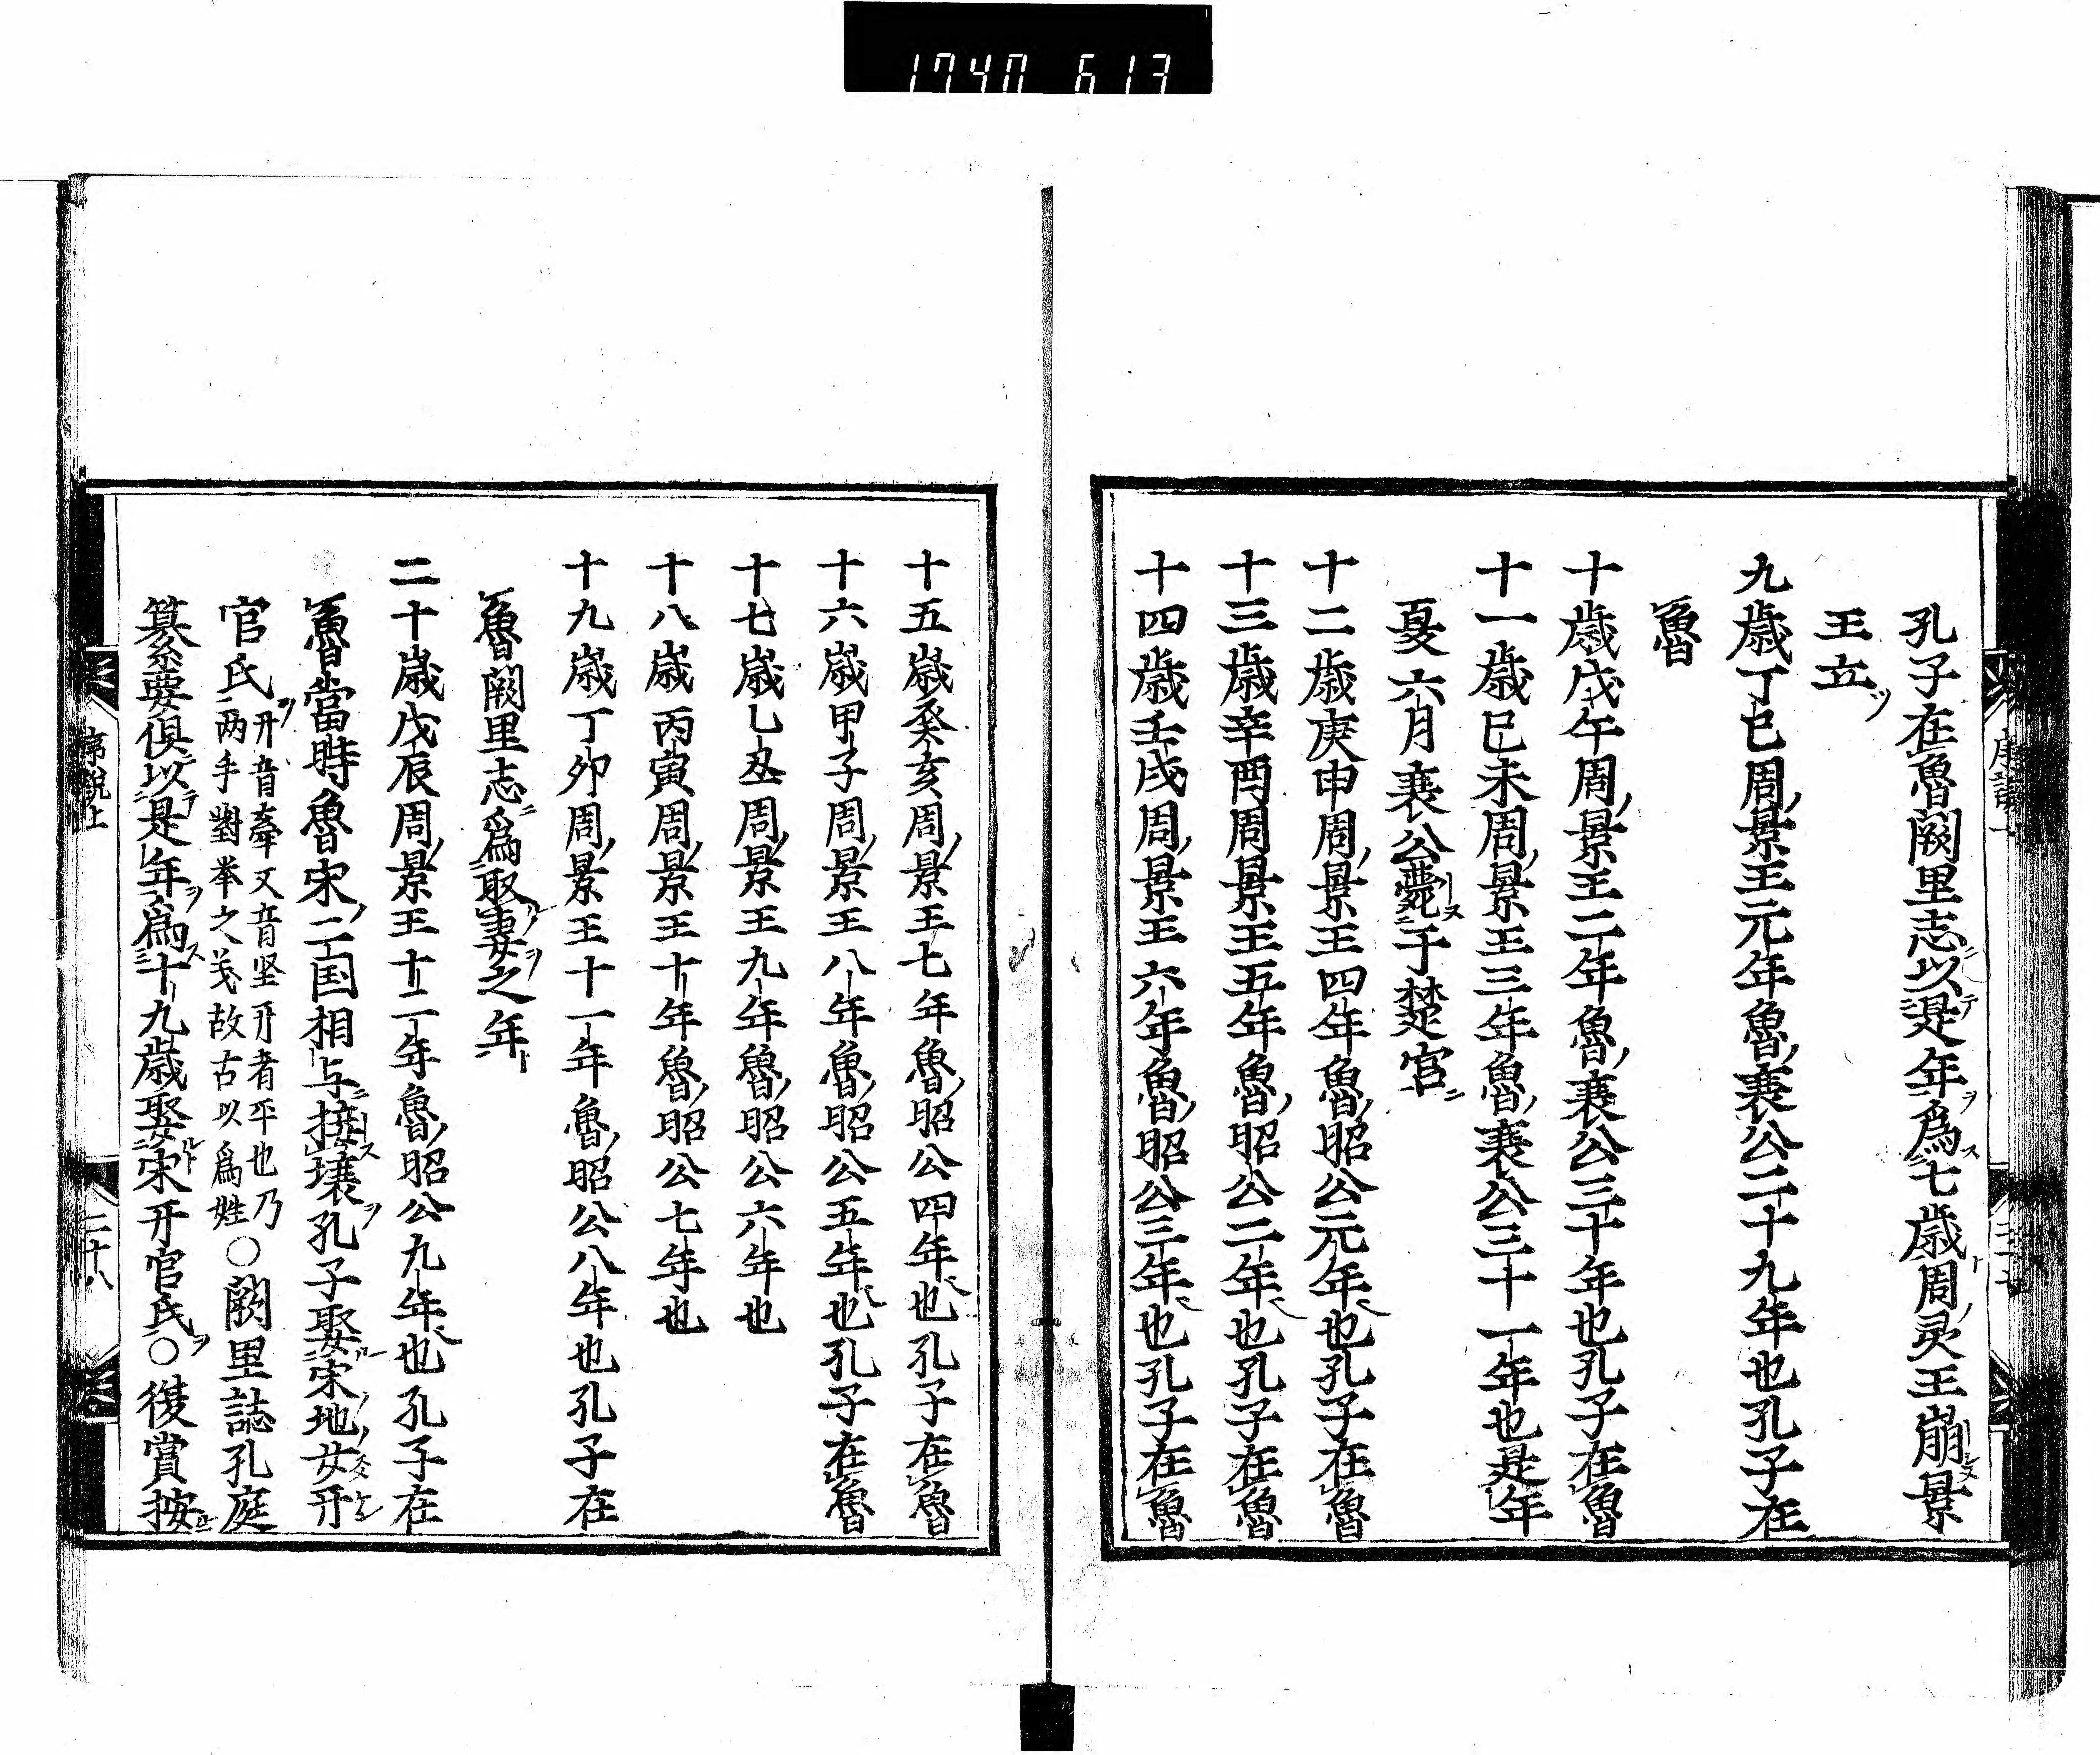 1740 613
孔子在魯闕里志以是年爲七歳周灵王崩景
王立
九歳丁巳周景王元年魯襄公二十九年也孔子在
魯
十歳戊午周景王二年魯襄公三十年也孔子在魯
十一歳巳未周景王三年魯襄公三十一年也是年
夏六月襄公薨于楚宮
十二歳庚申周景王四年魯昭公元年也孔子在魯
十三歳辛酉周景王五年魯昭公二年也孔子在魯
十四歳壬戌周景王六年魯昭公三年也孔子在魯
十五歳癸亥周景王七年魯昭公四年也孔子在魯
十六歳甲子周景王八年魯昭公五年也孔子在魯
十七歳乙丑周景王九年魯昭公六年也
十八歳丙寅周景王十年魯昭公七年也
十九歳丁卯周景王十一年魯昭公八年也孔子在
魯闕里志爲娶妻之年
二十歳戊辰周景王十二年魯昭公九年也孔子在
魯當時魯宋二国相与接壌孔子娶宋地女幵
官氏
幵音牽又音坚幵者平也乃
两手對举之羙故古以爲姓
○闕里誌孔庭
纂要俱以是年爲十九歳娶宋幵官氏○後賞按
序說上
二十八